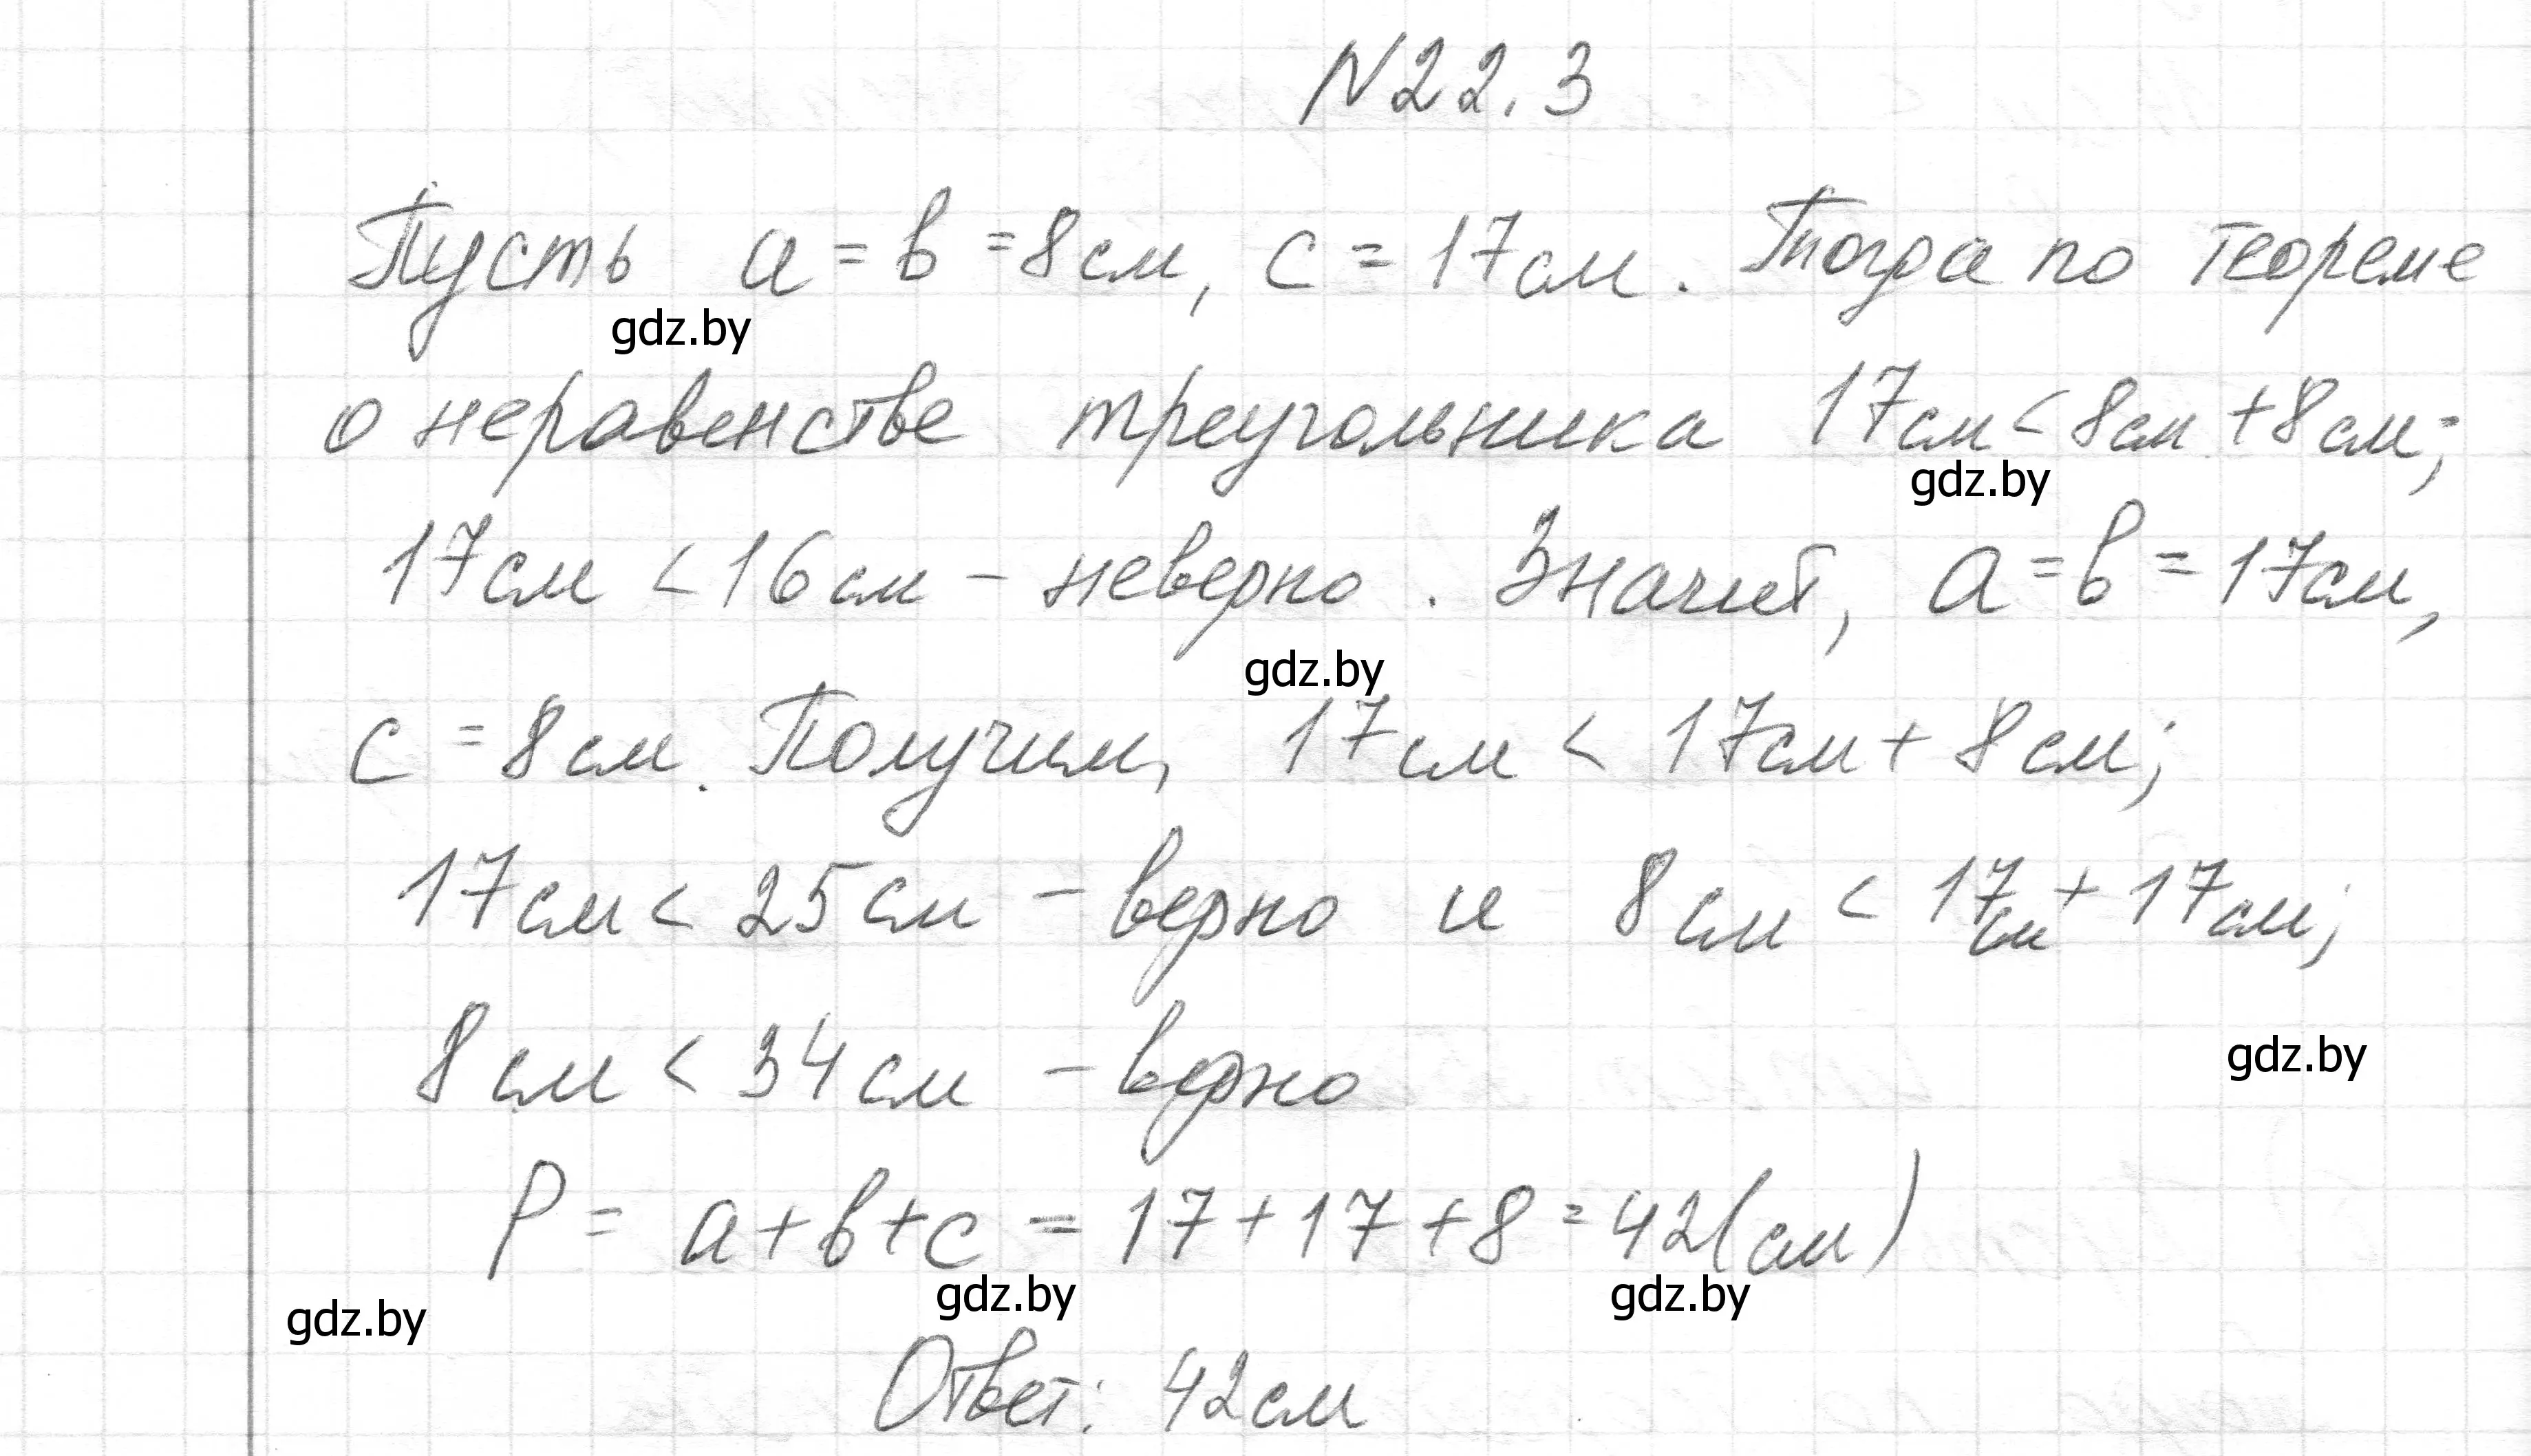 N22.3
Пусть a = b = 8см, c = 17см. Тогда по теореме
gdz.by
о неравенстве треугольника 17см < 8см + 8см;
gdz.by
17см < 16см - неверно. Значит, a = b = 17см,
gdz.by
c = 8см. Получим, 17см < 17см + 8см;
17см < 25см - верно и 8см < 17см + 17см;
8см < 34см - верно
gdz.by
P = a + b + c = 17 + 17 + 8 = 42(см)
gdz.by gdz.by
gdz.by
Ответ: 42см